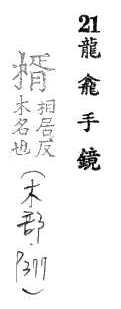 21龍龕手鏡
楈相居反
木名也
(木部.P377)